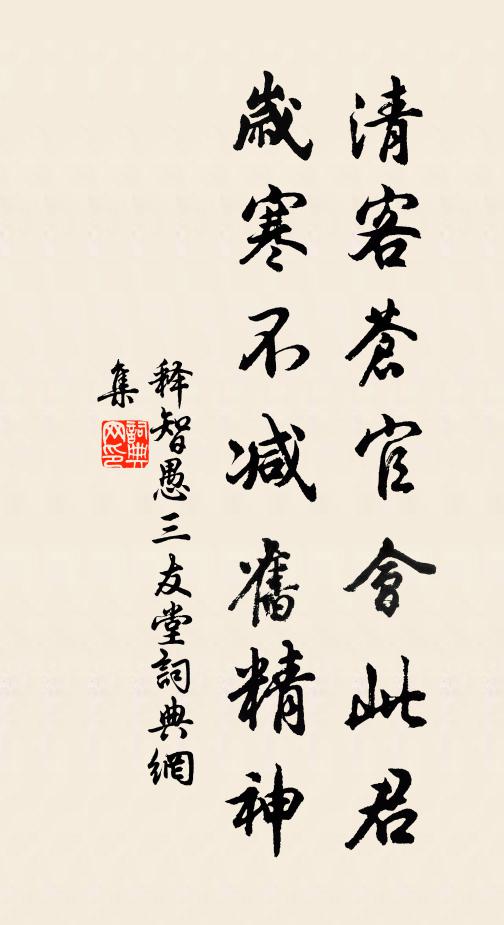 清客蒼官會此君
歲寒不減舊精神
释智愚三友堂詞典網
集
詞典網印